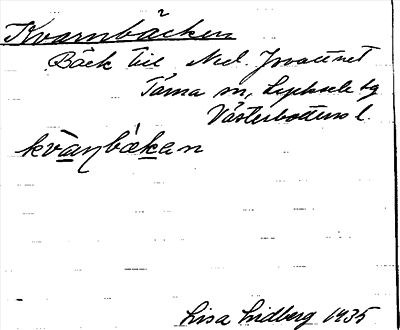 Kvarnbäcken
Bäck till Ned. Jovattnet
Tärna sn, Lycksele lg
Västerbottens l.
kvàɳbäkan
Lisa Lidberg 1935